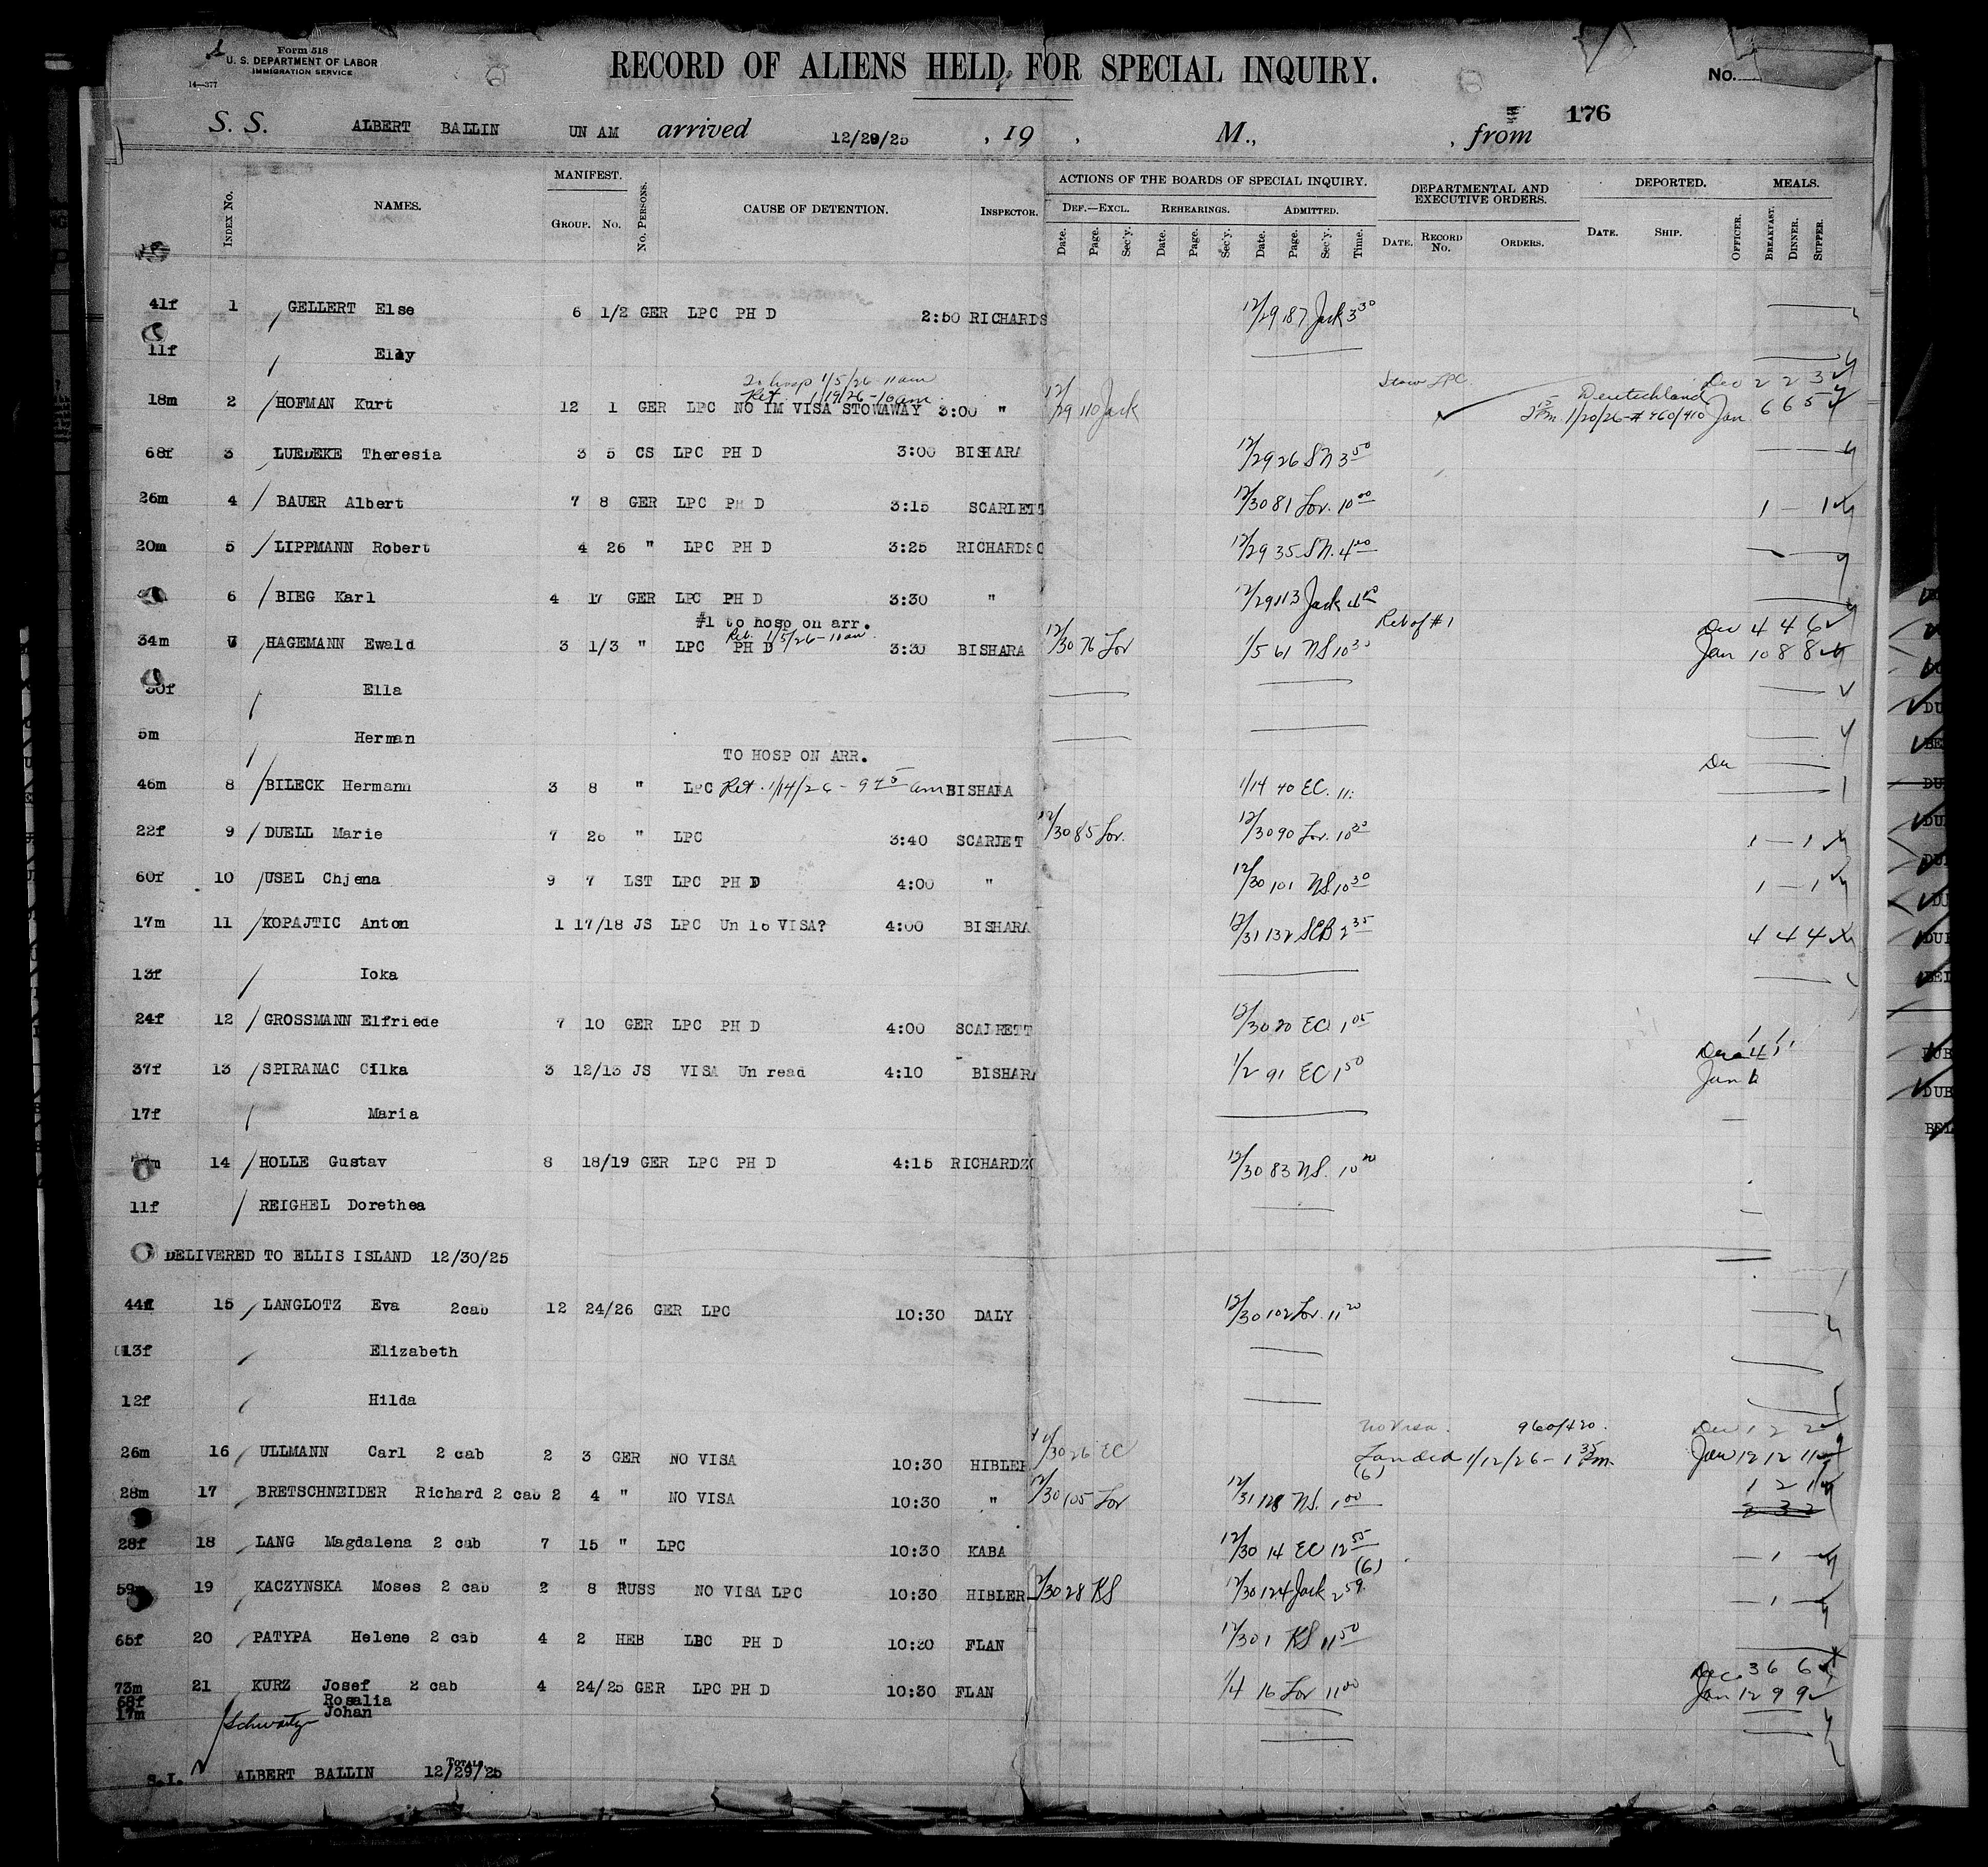 Form 518
U. S. DEPARTMENT OF LABOR
IMMIGRATION SERVICE
14—377
RECORD OF ALIENS HELD FOR SPECIAL INQUIRY.
No.
176
S. S. ALBERT BALLIN UN AM arrived 12/29/25 , 19 , M., , from
Index No. NAMES. MANIFEST. Group. No. No. Persons. CAUSE OF DETENTION. Inspector. ACTIONS OF THE BOARDS OF SPECIAL INQUIRY. DEPARTMENTAL AND EXECUTIVE ORDERS. DEPORTED. MEALS.
Def.—Excl. Rehearings. Admitted.
Date. Page. Sec'y. Date. Page. Sec'y. Date. Page. Sec'y. Time. Date. Record No. Orders. Date. Ship. Officer. Breakfast. Dinner. Supper.
41f 1 GELLERT Else 6 1/2 GER LPC PH D 2:50 RICHARDS 12/29 187 Jack 3 30
11f Elly
To hosp 1/5/26 - 11 am
Ret. 1/19/26 - 10 am. Stow LPC. Deutschland Dec 2 2 3
18m 2 HOFMAN Kurt 12 1 GER LPC NO IM VISA STOWAWAY 3:00 " 12/29 110 Jack 1/20/26 - # 460/410 Jan 6 6 5
68f 3 LUEDEKE Theresia 3 5 CS LPC PH D 3:00 BISHARA 12/29 26 SN 3 50
26m 4 BAUER Albert 7 8 GER LPC PH D 3:15 SCARLETT 12/30 81 Lor. 10 00 1 — 1
20m 5 LIPPMANN Robert 4 26 " LPC PH D 3:25 RICHARDSO 12/29 35 SN. 4 00
6 BIEG Karl 4 17 GER LPC PH D 3:30 " 12/29 113 Jack
#1 to hosp on arr. Ret of #1 Dec 4 4 6
Ret. 1/5/26 - 11 am.
34m 7 HAGEMANN Ewald 3 1/3 " LPC PH D 3:30 BISHARA 12/30 76 Lor 1/5 61 NS 10 30 Jan 10 8 8
30f Ella
5m Herman
TO HOSP ON ARR.
46m 8 BILECK Hermann 3 8 " LPC Ret. 1/14/26 - 9 45 am BISHARA 1/14 40 EC. 11:
22f 9 DUELL Marie 7 26 " LPC 3:40 SCARLET 12/30 85 Lor. 12/30 90 Lor. 10 30 1 — 1
60f 10 USEL Chjena 9 7 LST LPC PH D 4:00 " 12/30 101 NS 10 30 1 — 1
17m 11 KOPAJTIC Anton 1 17/18 JS LPC Un 16 VISA? 4:00 BISHARA 12/31 132 SCB 2 35 4 4 4
13f Ioka
24f 12 GROSSMANN Elfriede 7 10 GER LPC PH D 4:00 SCARRETT 12/30 20 EC 1 05
37f 13 SPIRANAC Cilka 3 12/13 JS VISA Un read 4:10 BISHARA 1/2 91 EC 1 50
17f Maria
14 HOLLE Gustav 8 18/19 GER LPC PH D 4:15 RICHARDZO 12/30 83 NS.
11f REIGHEL Dorethea
DELIVERED TO ELLIS ISLAND 12/30/25
44f 15 LANGLOTZ Eva 2cab 12 24/26 GER LPC 10:30 DALY 12/30 102 Lor. 11 20
13f Elizabeth
12f Hilda
no Visa. 960/420. Dec 1 2 2
26m 16 ULLMANN Carl 2 cab 2 3 GER NO VISA 10:30 HIBLER 12/30 26 EC Landed 1/12/26 - 1 35 pm Jan 12 12 11
(6)
28m 17 BRETSCHNEIDER Richard 2 cab 2 4 " NO VISA 10:30 " 12/30 105 Lor 12/31 128 NS. 1 00 1 2 1
2 3 2
28f 18 LANG Magdalena 2 cab 7 15 " LPC 10:30 KABA 12/30 14 EC 12 55 — 1 —
(6)
59m 19 KACZYNSKA Moses 2 cab 2 8 RUSS NO VISA LPC 10:30 HIBLER 12/30 28 KS 12/30 124 Jack 2 59 — 1 —
65f 20 PATYPA Helene 2 cab 4 2 HEB LPC PH D 10:30 FLAN 12/30 1 KS 11 50
Dec. 3 6 6
73m 21 KURZ Josef 2 cab 4 24/25 GER LPC PH D 10:30 FLAN 1/4 16 Lor 11 00 Jan 12 9 9
68f Rosalia
17m Johan
Schwartz
Total.
S.I. ALBERT BALLIN 12/29/25